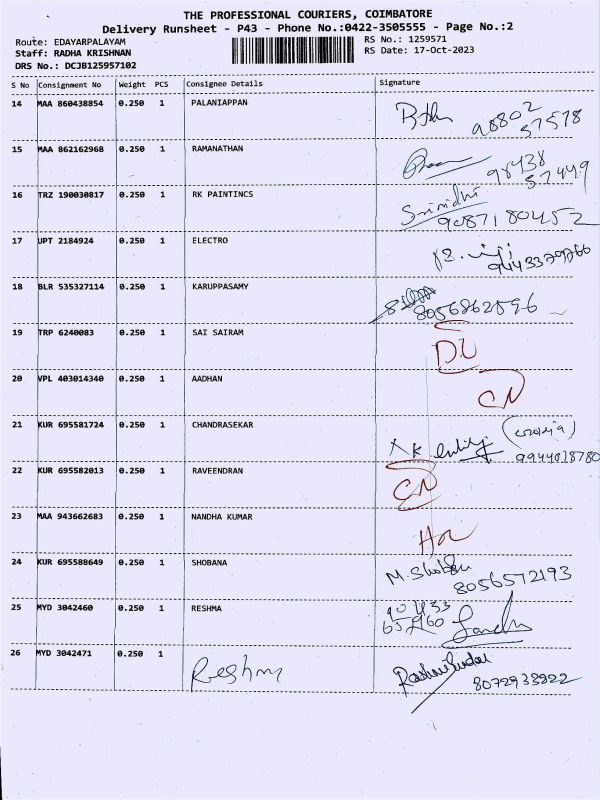 THE PROFESSIONAL COURIERS, COIMBATORE
Delivery Runsheet - P43 - Phone No.:0422-3505555 - Page No.:2
Route: EDAYARPALAYAM
RS No.: 1259571
Staff: RADHA KRISHNAN
RS Date: 17-Oct-2023
DRS No.: DCJB125957102
S No Consignment No Weight PCS Consignee Details Signature
14 MAA 860438854 0.250 1 PALANIAPPAN
98802
57578
15 MAA 862162968 0.250 1 RAMANATHAN
98438
57449
16 TRZ 190030817 0.250 1 RK PAINTINCS
Srinidhi
9087180452
17 UPT 2184924 0.250 1 ELECTRO
9443379766
18 BLR 535327114 0.250 1 KARUPPASAMY
8056862596
19 TRP 6240083 0.250 1 SAI SAIRAM
DL
20 VPL 403014340 0.250 1 AADHAN
CN
21 KUR 695581724 0.250 1 CHANDRASEKAR
9944018780
22 KUR 695582013 0.250 1 RAVEENDRAN
CN
23 MAA 943662683 0.250 1 NANDHA KUMAR
24 KUR 695588649 0.250 1 SHOBANA
M. Shobana
8056572193
25 MYD 3042460 0.250 1 RESHMA
26 MYD 3042471 0.250 1 Reshma
8072933222